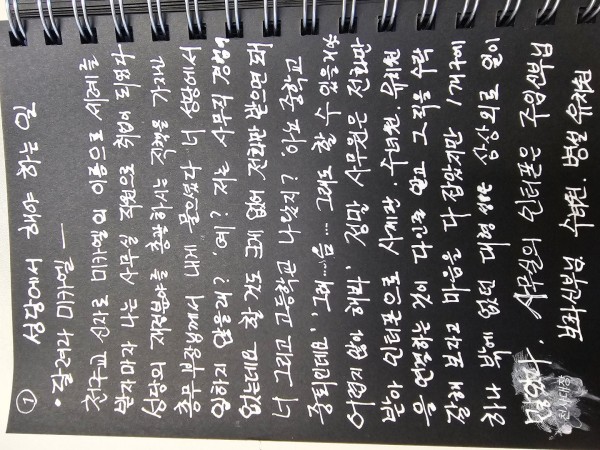 ① 성당에서 해야 하는 일
• 달려라 미카엘 —
천주교 신자로 미카엘의 이름으로 세례를
받자마자 나는 사무실 직원으로 취업이 되었다
성당의 재정분야를 총괄하시는 직책을 가지신
총무 부장님께서 내게 물으셨다 너 성당에서
일하지 않을래? '예? 저는 사무직 경험이
없는데요 할 것도 크게 없어 전화만 받으면 돼
너 그리고 고등학교 나왔지? '아뇨 중학교
중퇴인데요' '그래...음... 그래도 할 수 있을거야
어렵지 않아 해봐' 정말 사무원은 전화만
받아 인터폰으로 사제관. 수녀원. 유치원
을 연결하는 것이 다인줄 알고 그 직을 수락
잘해 보자고 마음을 다 잡았지만 1개구에
하나 밖에 없던 대형 성당은 상상외로 일이
많았다. 사무실의 인터폰은 주임신부님
보좌신부님, 수녀원. 병설 유치원
천사대장